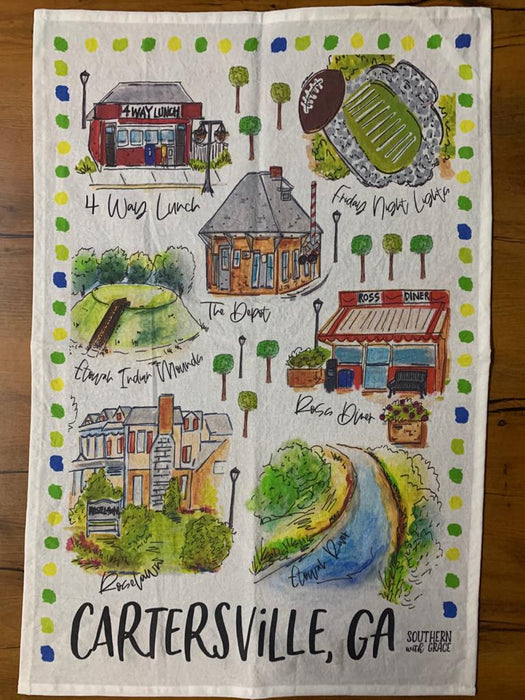 4 WAY LUNCH
4 Way Lunch
Friday Night Lights
The Depot
Etowah Indian Mounds
ROSS DINER
Ross Diner
ROSELAWN
Roselawn
Etowah River
CARTERSVILLE, GA
SOUTHERN
with GRACE